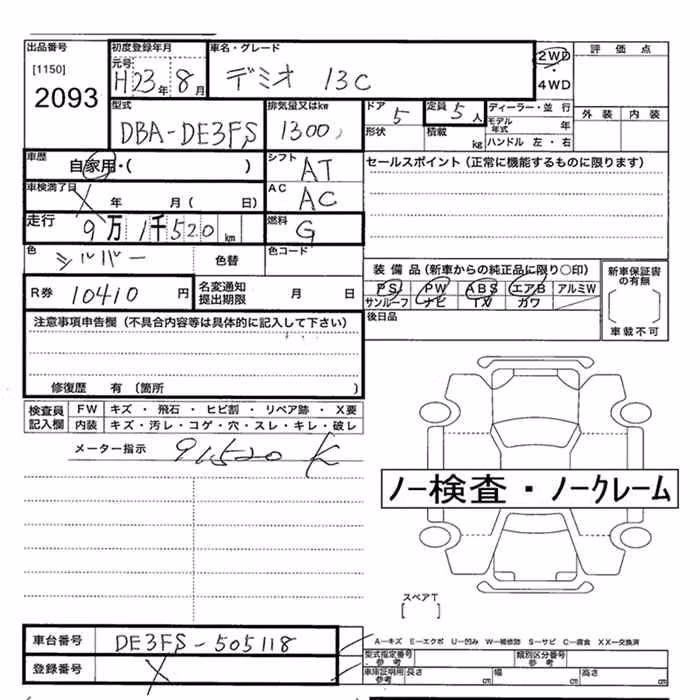 出品番号 初度登録年月 車名・グレード 2WD 評価点
[1150] 元号 H23年8月 デミオ 13C ・ 4WD
2093 外装 内装
型式 DBA-DE3FS 排気量又はkw 1300 ドア 5 形状 定員 5人 積載 kg ディーラー・並行 モデル年式 年 ハンドル 左・右
車歴 自家用・( ) シフト AT セールスポイント(正常に機能するものに限ります)
車検満了日 年 月( 日) AC AC
走行 9万1千520km 燃料 G
色 シルバー 色替 色コード
装備品(新車からの純正品に限り○印) 新車保証書の有無
R券 10410円 名変通知提出期限 月 日 PS PW ABS エアB アルミW
サンルーフ ナビ TV カワ 車載不可
後日品
注意事項申告欄(不具合内容等は具体的に記入して下さい)
修復歴 有(箇所 )
検査員記入欄 FW キズ・飛石・ヒビ割・リペア跡・X要
内装 キズ・汚レ・コゲ・穴・スレ・キレ・破レ
メーター指示 91520 K
ノー検査・ノークレーム
スペアT
[ ]
車台番号 DE3FS-505118 A-キズ E-エクボ U-凹み W-補修跡 S-サビ C-腐食 XX-交換済
型式指定番号 参考 類別区分番号 参考
登録番号 車庫証明用参考 長さ cm 幅 cm 高さ cm